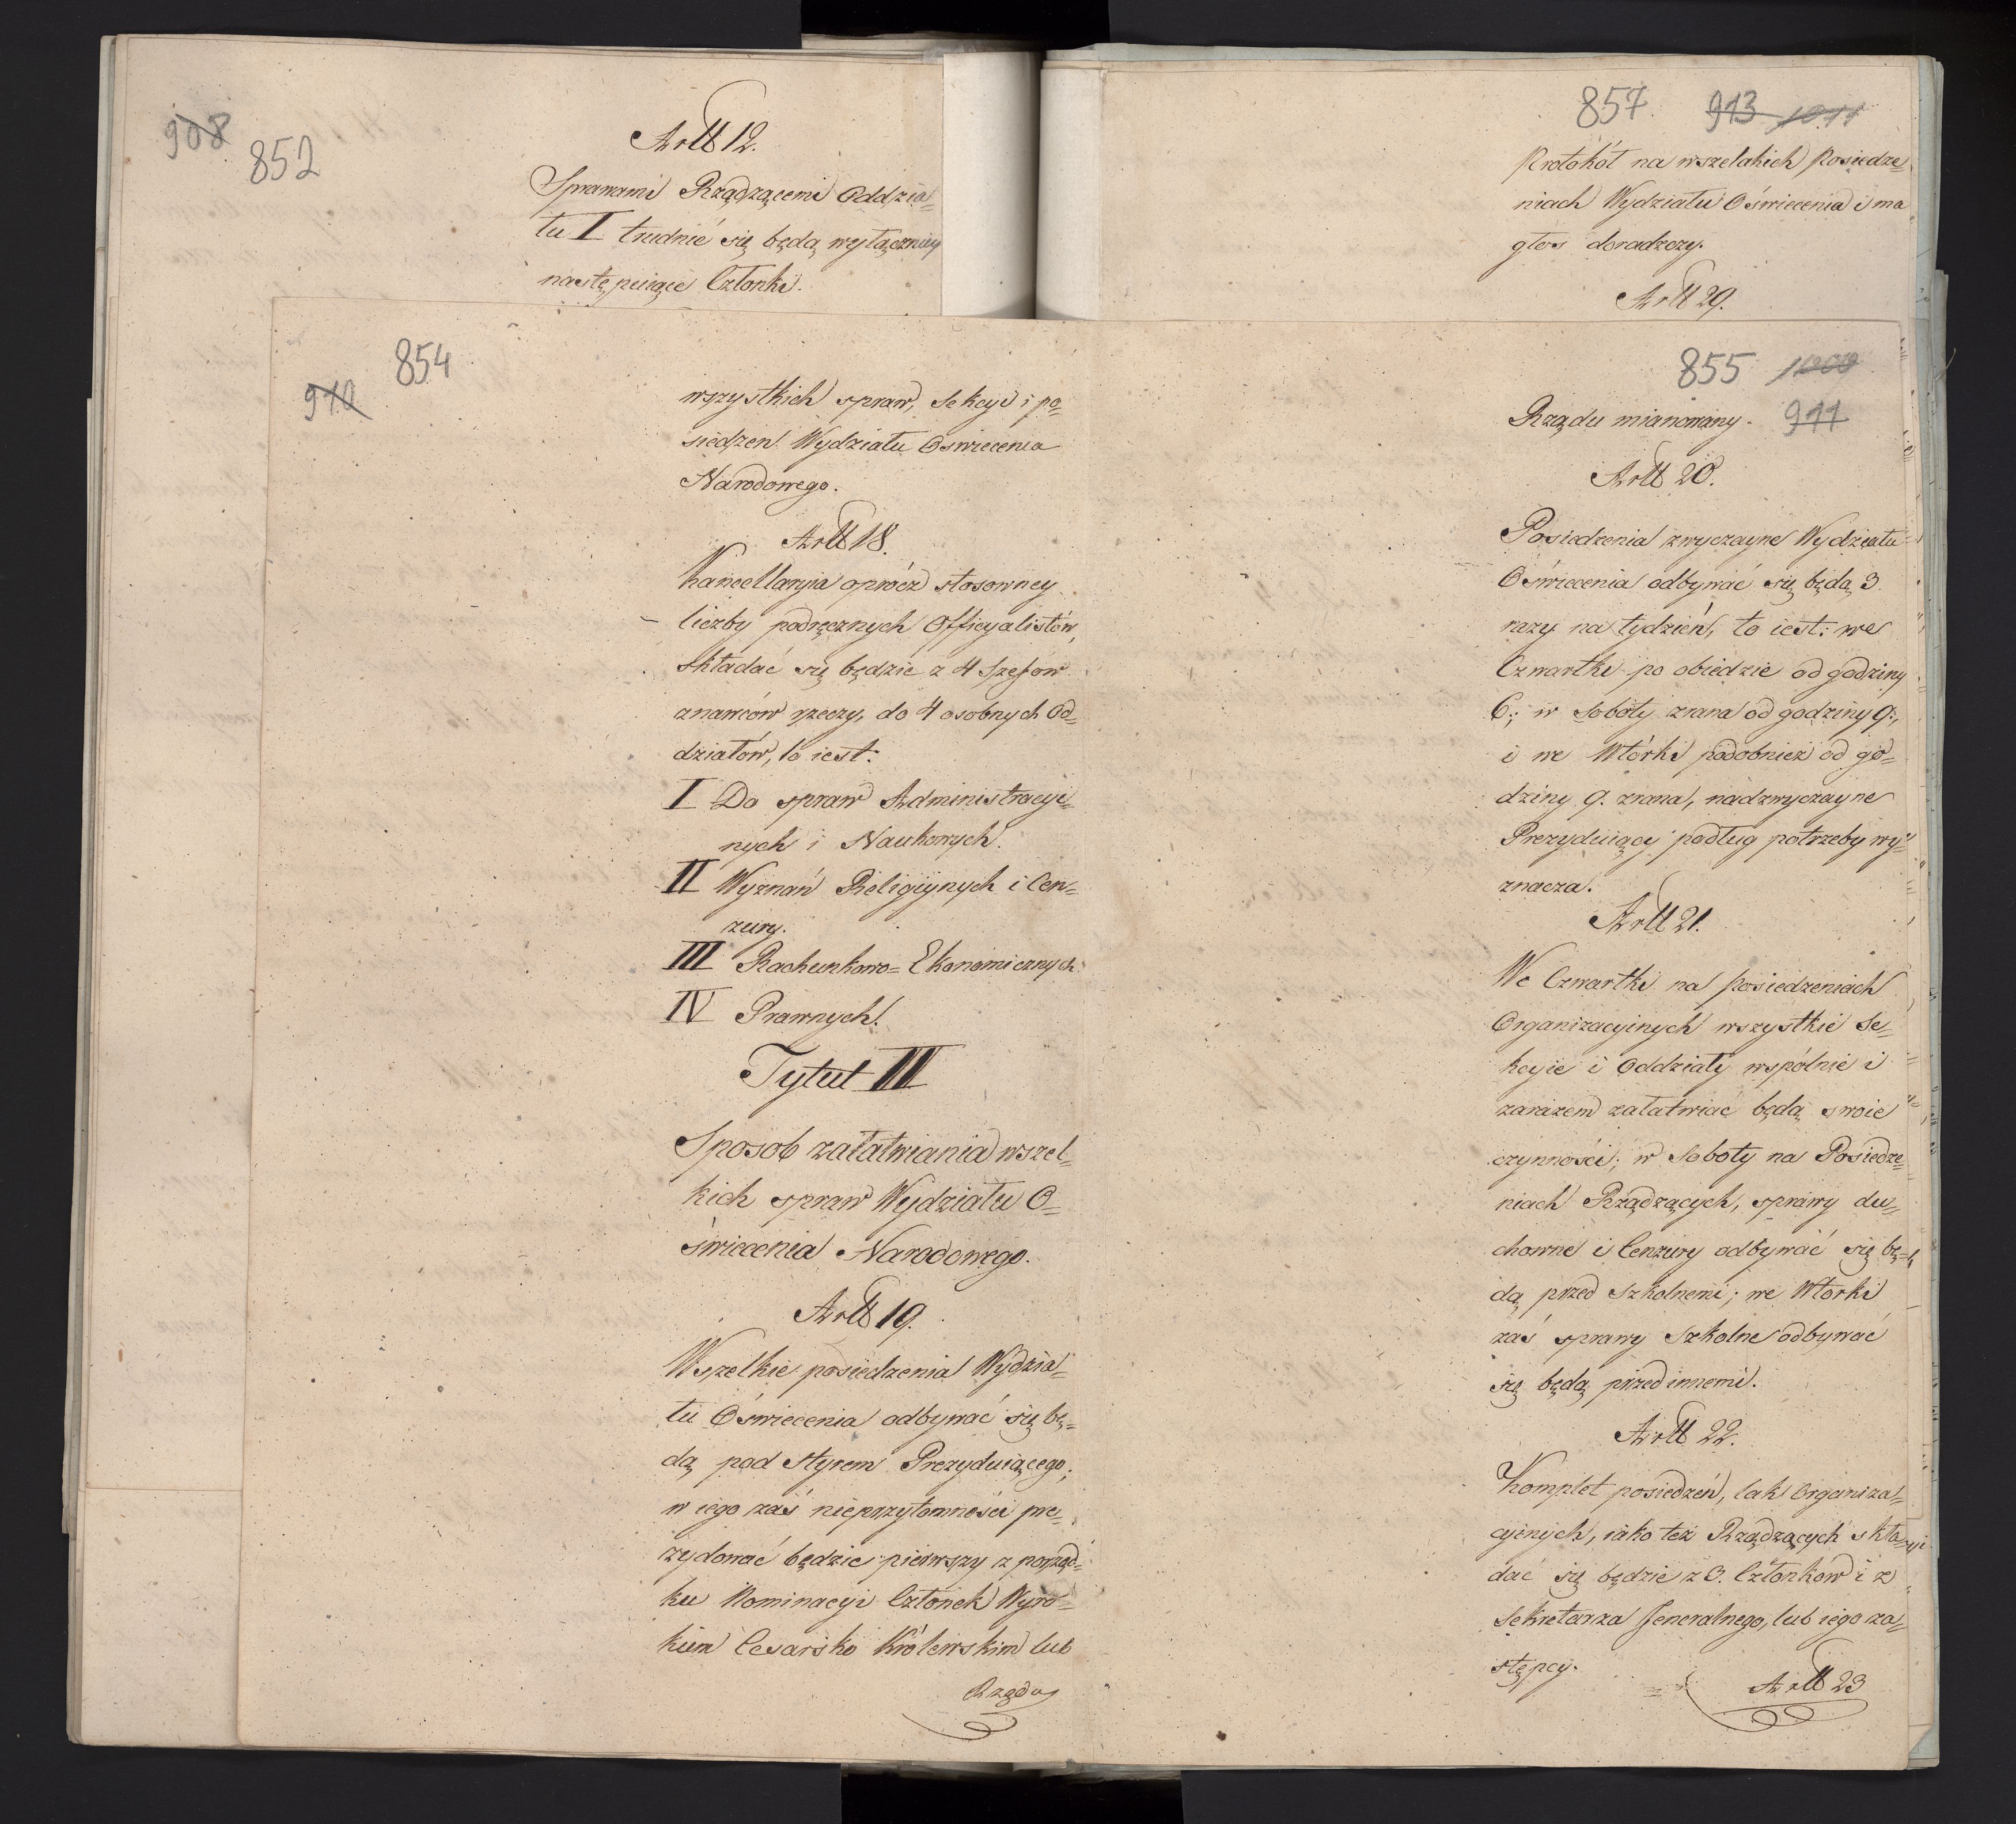 908
852
Artt 12.
Sprawami Rządzącemi Oddzia=
łu I trudnić się będą wyłączniey
następuiące Członki.
857. 913 1011
Protokół na wszelakich Posiedze=
niach Wydziału Oświecenia i ma
głos doradzczy.
Artt 29.
854
910
wszystkich spraw, Sekcyi i po=
siedzeń Wydziału Oświecenia
Narodowego.
Artt 18.
Kancellaryia oprócz stosowney
liczby podręcznych Officyalistów,
składać się będzie z 4 Szefów
znawców rzeczy, do 4 osobnych Od=
działów, to iest:
I Do spraw Administracyi=
nych i Naukowych.
II Wyznań Religiynych i Cen=
zury.
III Rachunkowo=Ekonomicznych.
IV Prawnych.
Tytuł III
Sposob załatwiania wszel=
kich spraw Wydziału O=
świecenia Narodowego.
Artt 19.
Wszelkie posiedzenia Wydzia=
łu Oświecenia odbywać się bę=
dą pod styrem Prezyduiącego;
w iego zaś nieprzytomności pre=
zydować będzie pierwszy z porząd=
ku Nominacyi Członek Wyro=
kiem Cesarsko Królewskim lub
Rządu
855 1009
911
Rządu mianowany.
Artt 20.
Posiedzenia zwyczayne Wydziału
Oświecenia odbywać się będą 3
razy na tydzień, to iest: we
Czwartki po obiedzie od godziny
6; w Soboty zrana od godziny 9;
i we Wtórki podobnież od go=
dziny 9. zrana, nadzwyczayne
Prezyduiący podług potrzeby wy=
znacza.
Artt 21.
We Czwartki na posiedzeniach
Organizacyinych wszystkie Se=
kcyie i Oddziały wspólnie i
zarazem załatwiać będą swoie
czynności; w Soboty na Posiedze=
niach Rządzących, sprawy du=
chowne i Cenzury odbywać się bę=
dą przed Szkolnemi; we Wtorki
zaś sprawy Szkolne odbywać
się będą przed innemi.
Artt 22.
Komplet posiedzeń, tak Organiza=
cyinych, iako też Rządzących skła=
dać się będzie z 3. Członków i z
Sekretarza Jeneralnego, lub iego za=
stępcy.
Artt 23